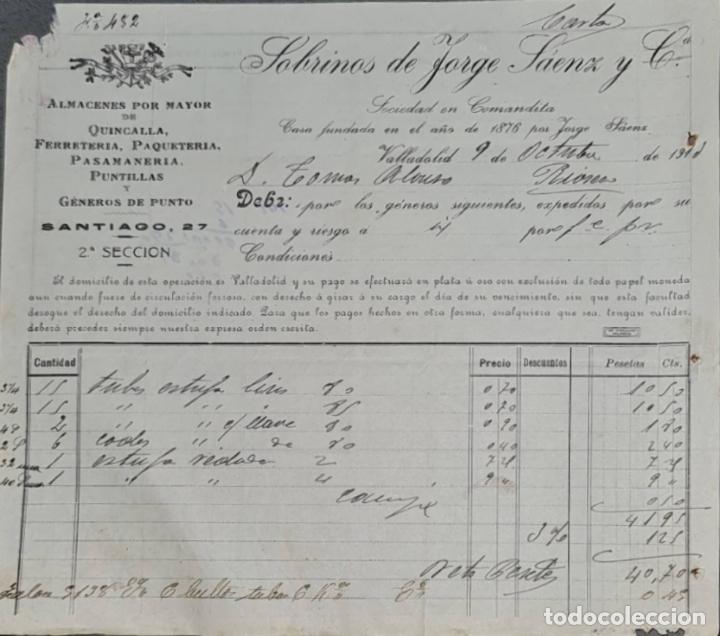 Nº 482
Carta
Sobrinos de Jorge Sáenz y Cª
Sociedad en Comandita
Casa fundada en el año de 1876 por Jorge Sáenz
Valladolid 9 de Octubre de 191
ALMACENES POR MAYOR
DE
QUINCALLA,
FERRETERIA, PAQUETERIA,
PASAMANERIA,
PUNTILLAS
Y
GÉNEROS DE PUNTO
SANTIAGO, 27
2.ª SECCION
D. Tomas Alonso Riono
Debe: por los géneros siguientes, expedidos por su
cuenta y riesgo á por f.c. pv.
Condiciones
El domicilio de esta operación es Valladolid y su pago se efectuará en plata ú oro con exclusión de todo papel moneda
aun cuando fuere de circulación forzosa, con derecho á girar á su cargo el día de su vencimiento, sin que esta facultad
desogue el derecho del domicilio indicado. Para que los pagos hechos en otra forma, cualquiera que sea, tengan validez,
deberá preceder siempre nuestra expresa orden escrita.
Cantidad Precio Descuentos Pesetas Cts.
15 tubos estufa lisos 80 0 70 10 50
15 " " " 85 0 70 10 50
2 " " c/ llave 80 0 90 1 80
6 codos " de 80 0 40 2 40
1 estufa redonda 2
1 " " 4 9 " 9 "
0 10
41 95
3 % 1 25
40,70
bultos tubos 0 45
todocoleccion.com